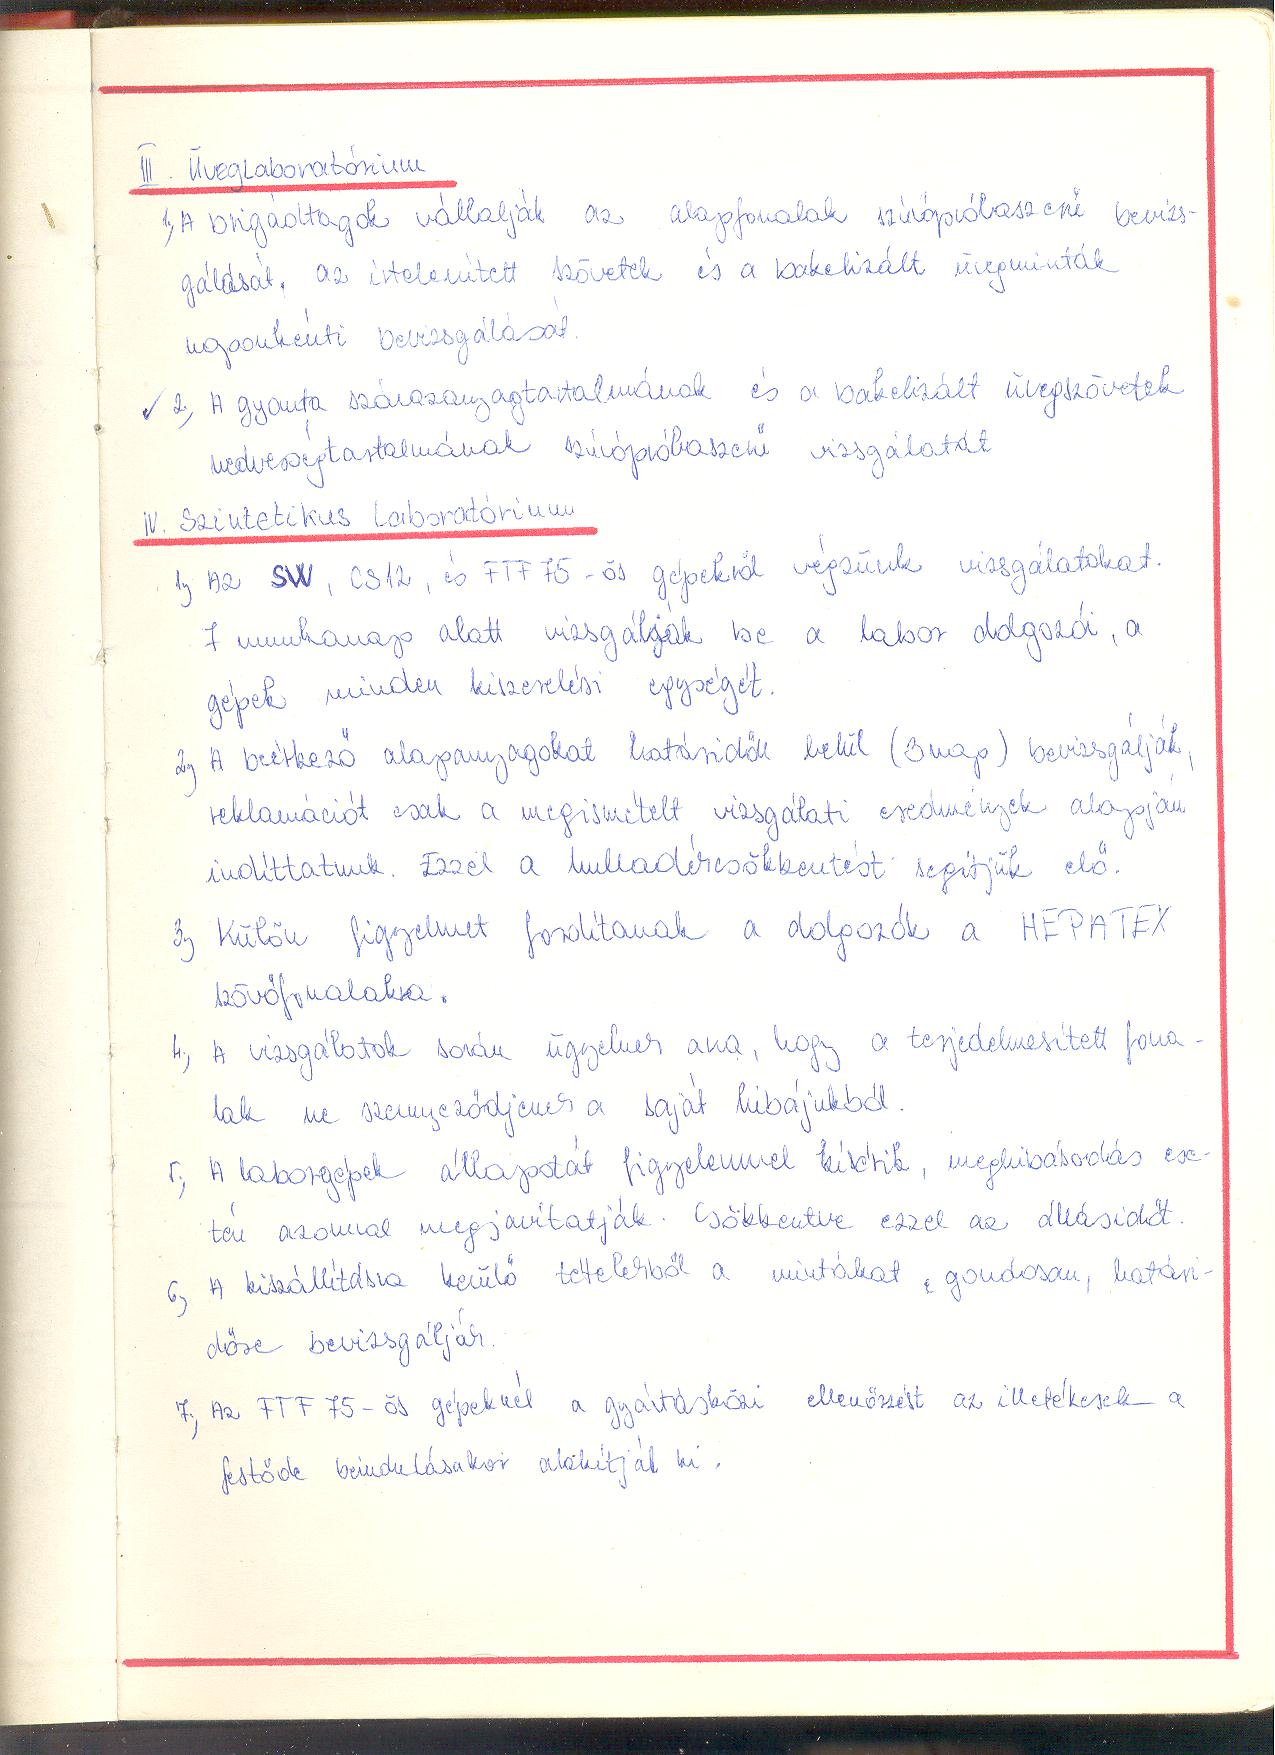 III. Üveglaboratórium
1, A brigádtagok vállalják az alapfonalak szúrópróbaszerű bevizs-
gálását, az írtelenített szövetek és a bakelizált üvegminták
naponkénti bevizsgálását.
✓ 2, A gyanta szárazanyagtartalmának és a bakelizált üvegszövetek
nedvességtartalmának szúrópróbaszerű vizsgálatát
IV. Szintetikus Laboratórium
1, Az SW, CS12, és FTF 75-ös gépekről végzünk vizsgálatokat.
7 munkanap alatt vizsgálják be a labor dolgozói, a
gépek minden kiszerelési egységét.
2, A beérkező alapanyagokat határidőn belül (3 nap) bevizsgálják,
reklamációt csak a megismételt vizsgálati eredmények alapján
indíttatunk. Ezzel a hulladékcsökkentést segítjük elő.
3, Külön figyelmet fordítanak a dolgozók a HEPATEX
szövőfonalakra.
4, A vizsgálatok során ügyelnek arra, hogy a terjedelmesített fona-
lak ne szennyeződjenek a saját hibájukból.
5, A laborgépek állapotát figyelemmel kísérik, meghibásodás ese-
tén azonnal megjavítatják. Csökkentve ezzel az állásidőt.
6, A kiszállításra kerülő tételekből a mintákat gondosan, határi-
dőre bevizsgálják.
7, Az FTF 75-ös gépeknél a gyártásközi ellenőrzést az illetékesek a
festőde beindulásakor alakítják ki.